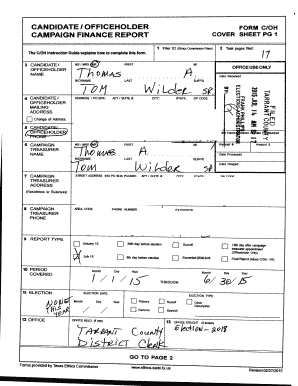 CANDIDATE / OFFICEHOLDER FORM C/OH
CAMPAIGN FINANCE REPORT COVER SHEET PG 1
The C/OH Instruction Guide explains how to complete this form.
1 Filer ID (Ethics Commission Filers)
2 Total pages filed:
17
3 CANDIDATE / OFFICEHOLDER NAME
MS / MRS / MR FIRST MI
Thomas A.
NICKNAME LAST SUFFIX
TOM Wilder SR
OFFICE USE ONLY
Date Received
FILED
TARRANT COUNTY
4 CANDIDATE / OFFICEHOLDER MAILING ADDRESS
ADDRESS / PO BOX; APT / SUITE #; CITY; STATE; ZIP CODE
Change of Address
5 CANDIDATE / OFFICEHOLDER PHONE
6 CAMPAIGN TREASURER NAME
MS / MRS / MR FIRST MI
Thomas A.
NICKNAME LAST SUFFIX
TOM Wilder SR
Receipt #
Date Processed
Date Imaged
7 CAMPAIGN TREASURER ADDRESS
(Residence or Business)
STREET ADDRESS (NO PO BOX PLEASE); APT / SUITE #; CITY; STATE;
8 CAMPAIGN TREASURER PHONE
AREA CODE PHONE NUMBER EXTENSION
9 REPORT TYPE
January 15
30th day before election
Runoff
15th day after campaign treasurer appointment (Officeholder Only)
X July 15
8th day before election
Final Report (Attach C/OH - FR)
10 PERIOD COVERED
Month Day Year
1/1/15 THROUGH 6/30/15
11 ELECTION
NONE THIS YEAR
ELECTION DATE
Month Day Year
ELECTION TYPE
Primary
Runoff
Other
General
Special
12 OFFICE
OFFICE HELD (if any)
TARRANT County
District Clerk
13 OFFICE SOUGHT (if known)
Election - 2018
GO TO PAGE 2
Forms provided by Texas Ethics Commission www.ethics.state.tx.us